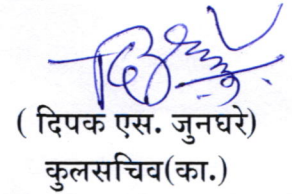 ( दिपक एस. जुनघरे)
कुलसचिव(का.)